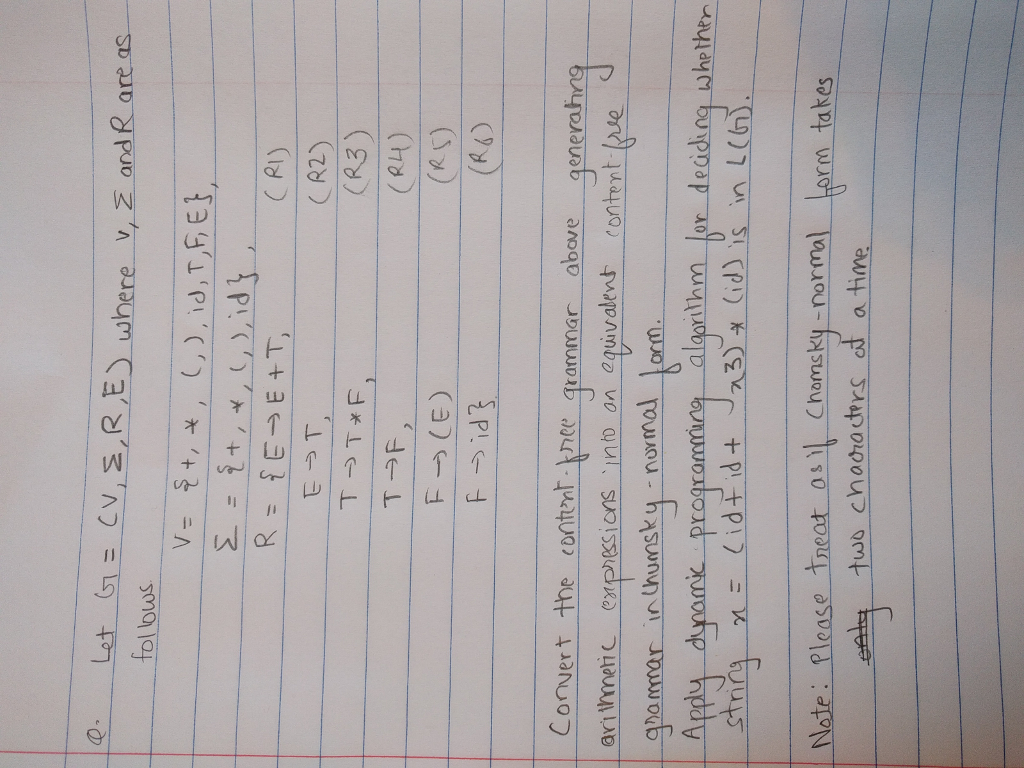 Q. Let G = (V, Σ, R, E) where V, Σ and R are as
follows.
V = {+, *, (, ), id, T, F, E},
Σ = {+, *, (, ), id},
R = {E → E + T, (R1)
E → T, (R2)
T → T * F, (R3)
T → F, (R4)
F → (E) (R5)
F → id} (R6)
Convert the context-free grammar above generating
arithmetic expressions into an equivalent context-free
grammar in Chomsky-normal form.
Apply dynamic programming algorithm for deciding whether
string x = (id + id + x3) * (id) is in L(G).
Note: Please treat as if Chomsky-normal form takes
two characters at a time.